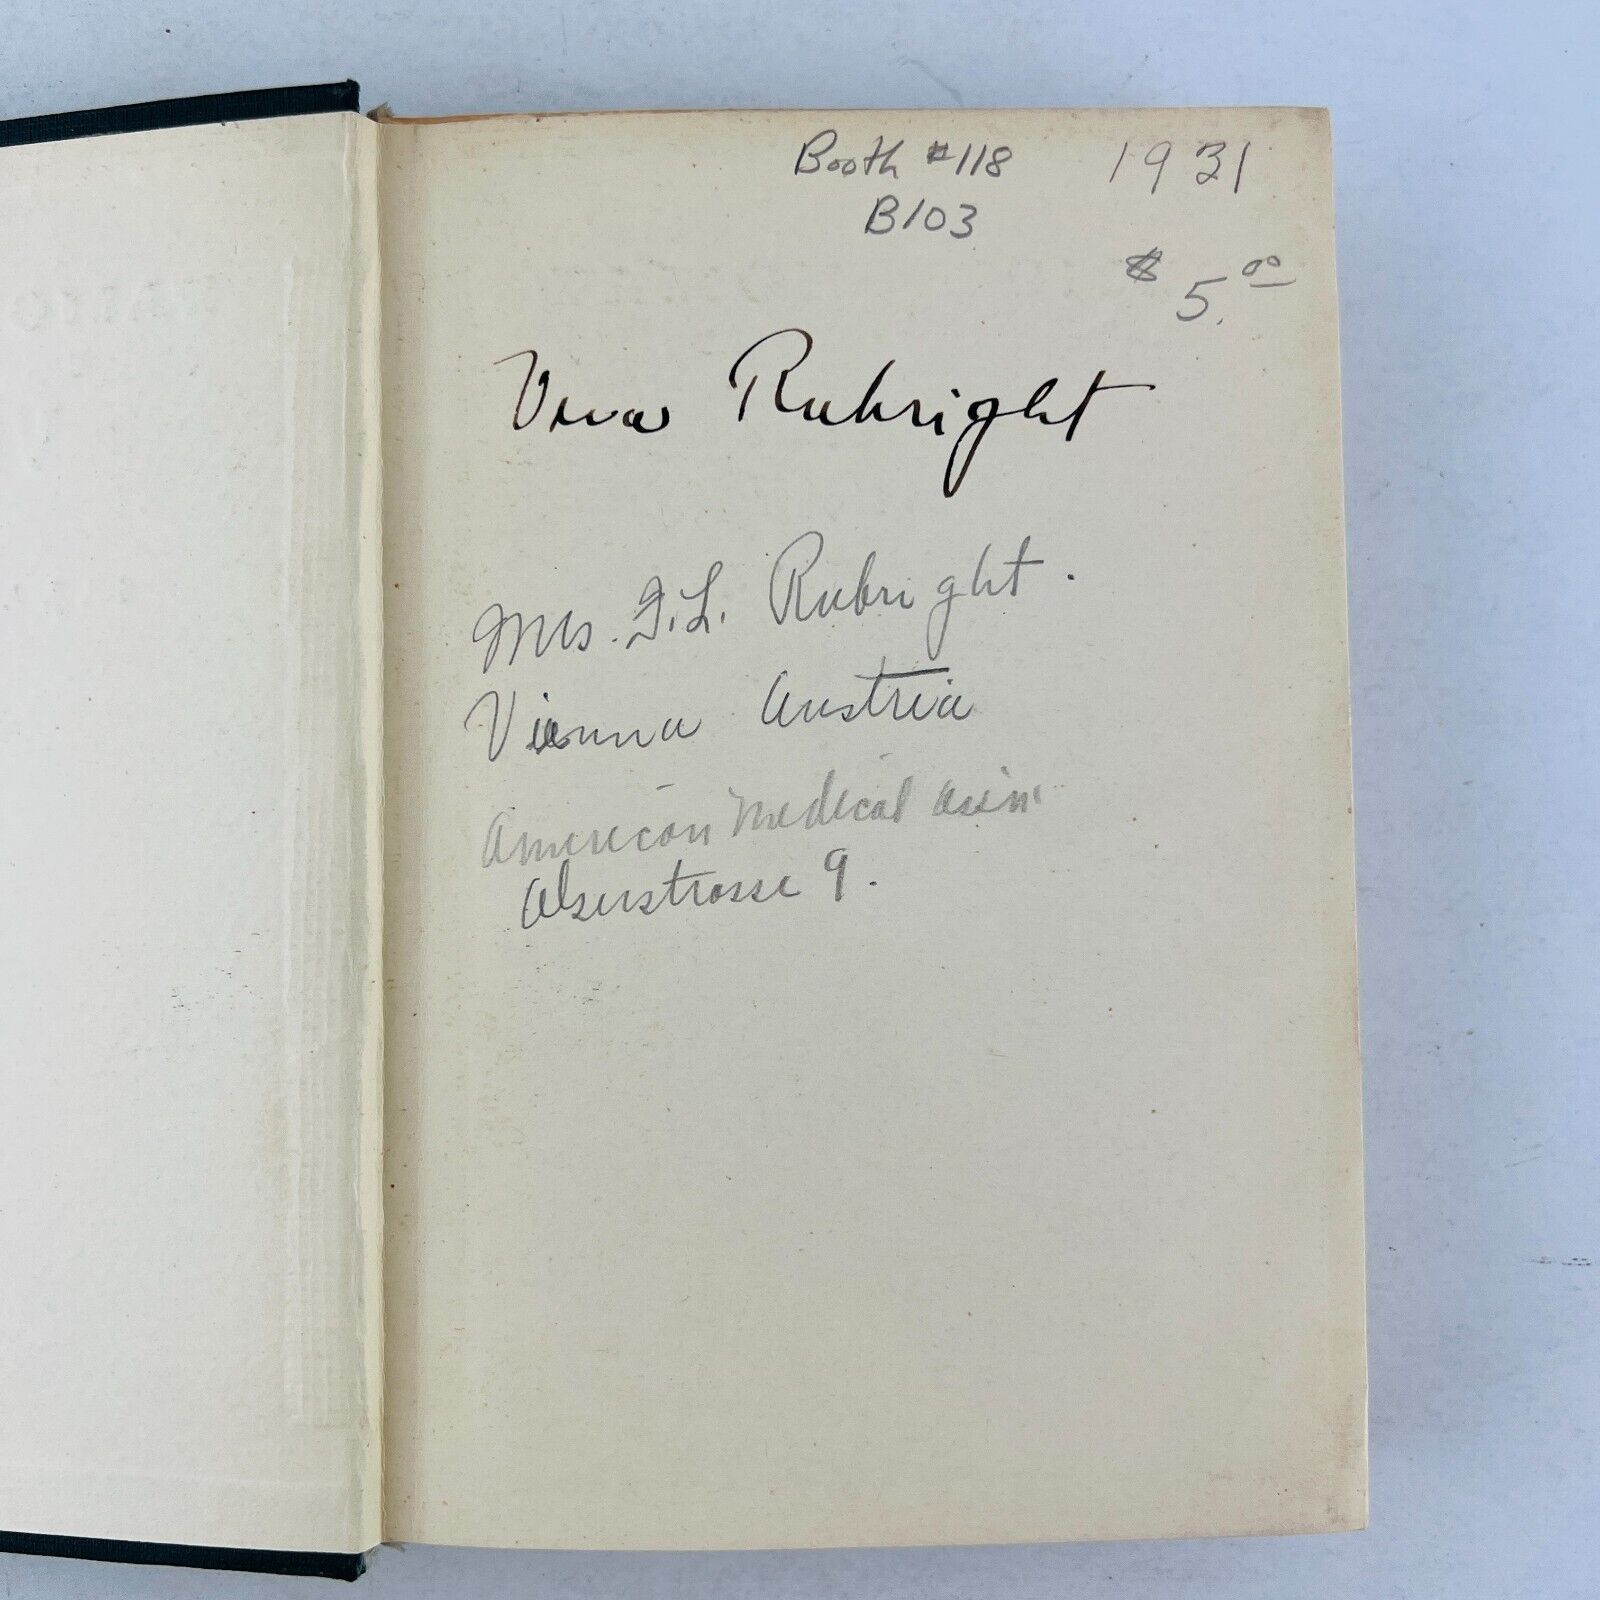 Booth #118 1931
B103
$5.00
Vera Rubright
Mrs. F.L. Rubright.
Vienna Austria
American Medical
Alserstrasse 9.